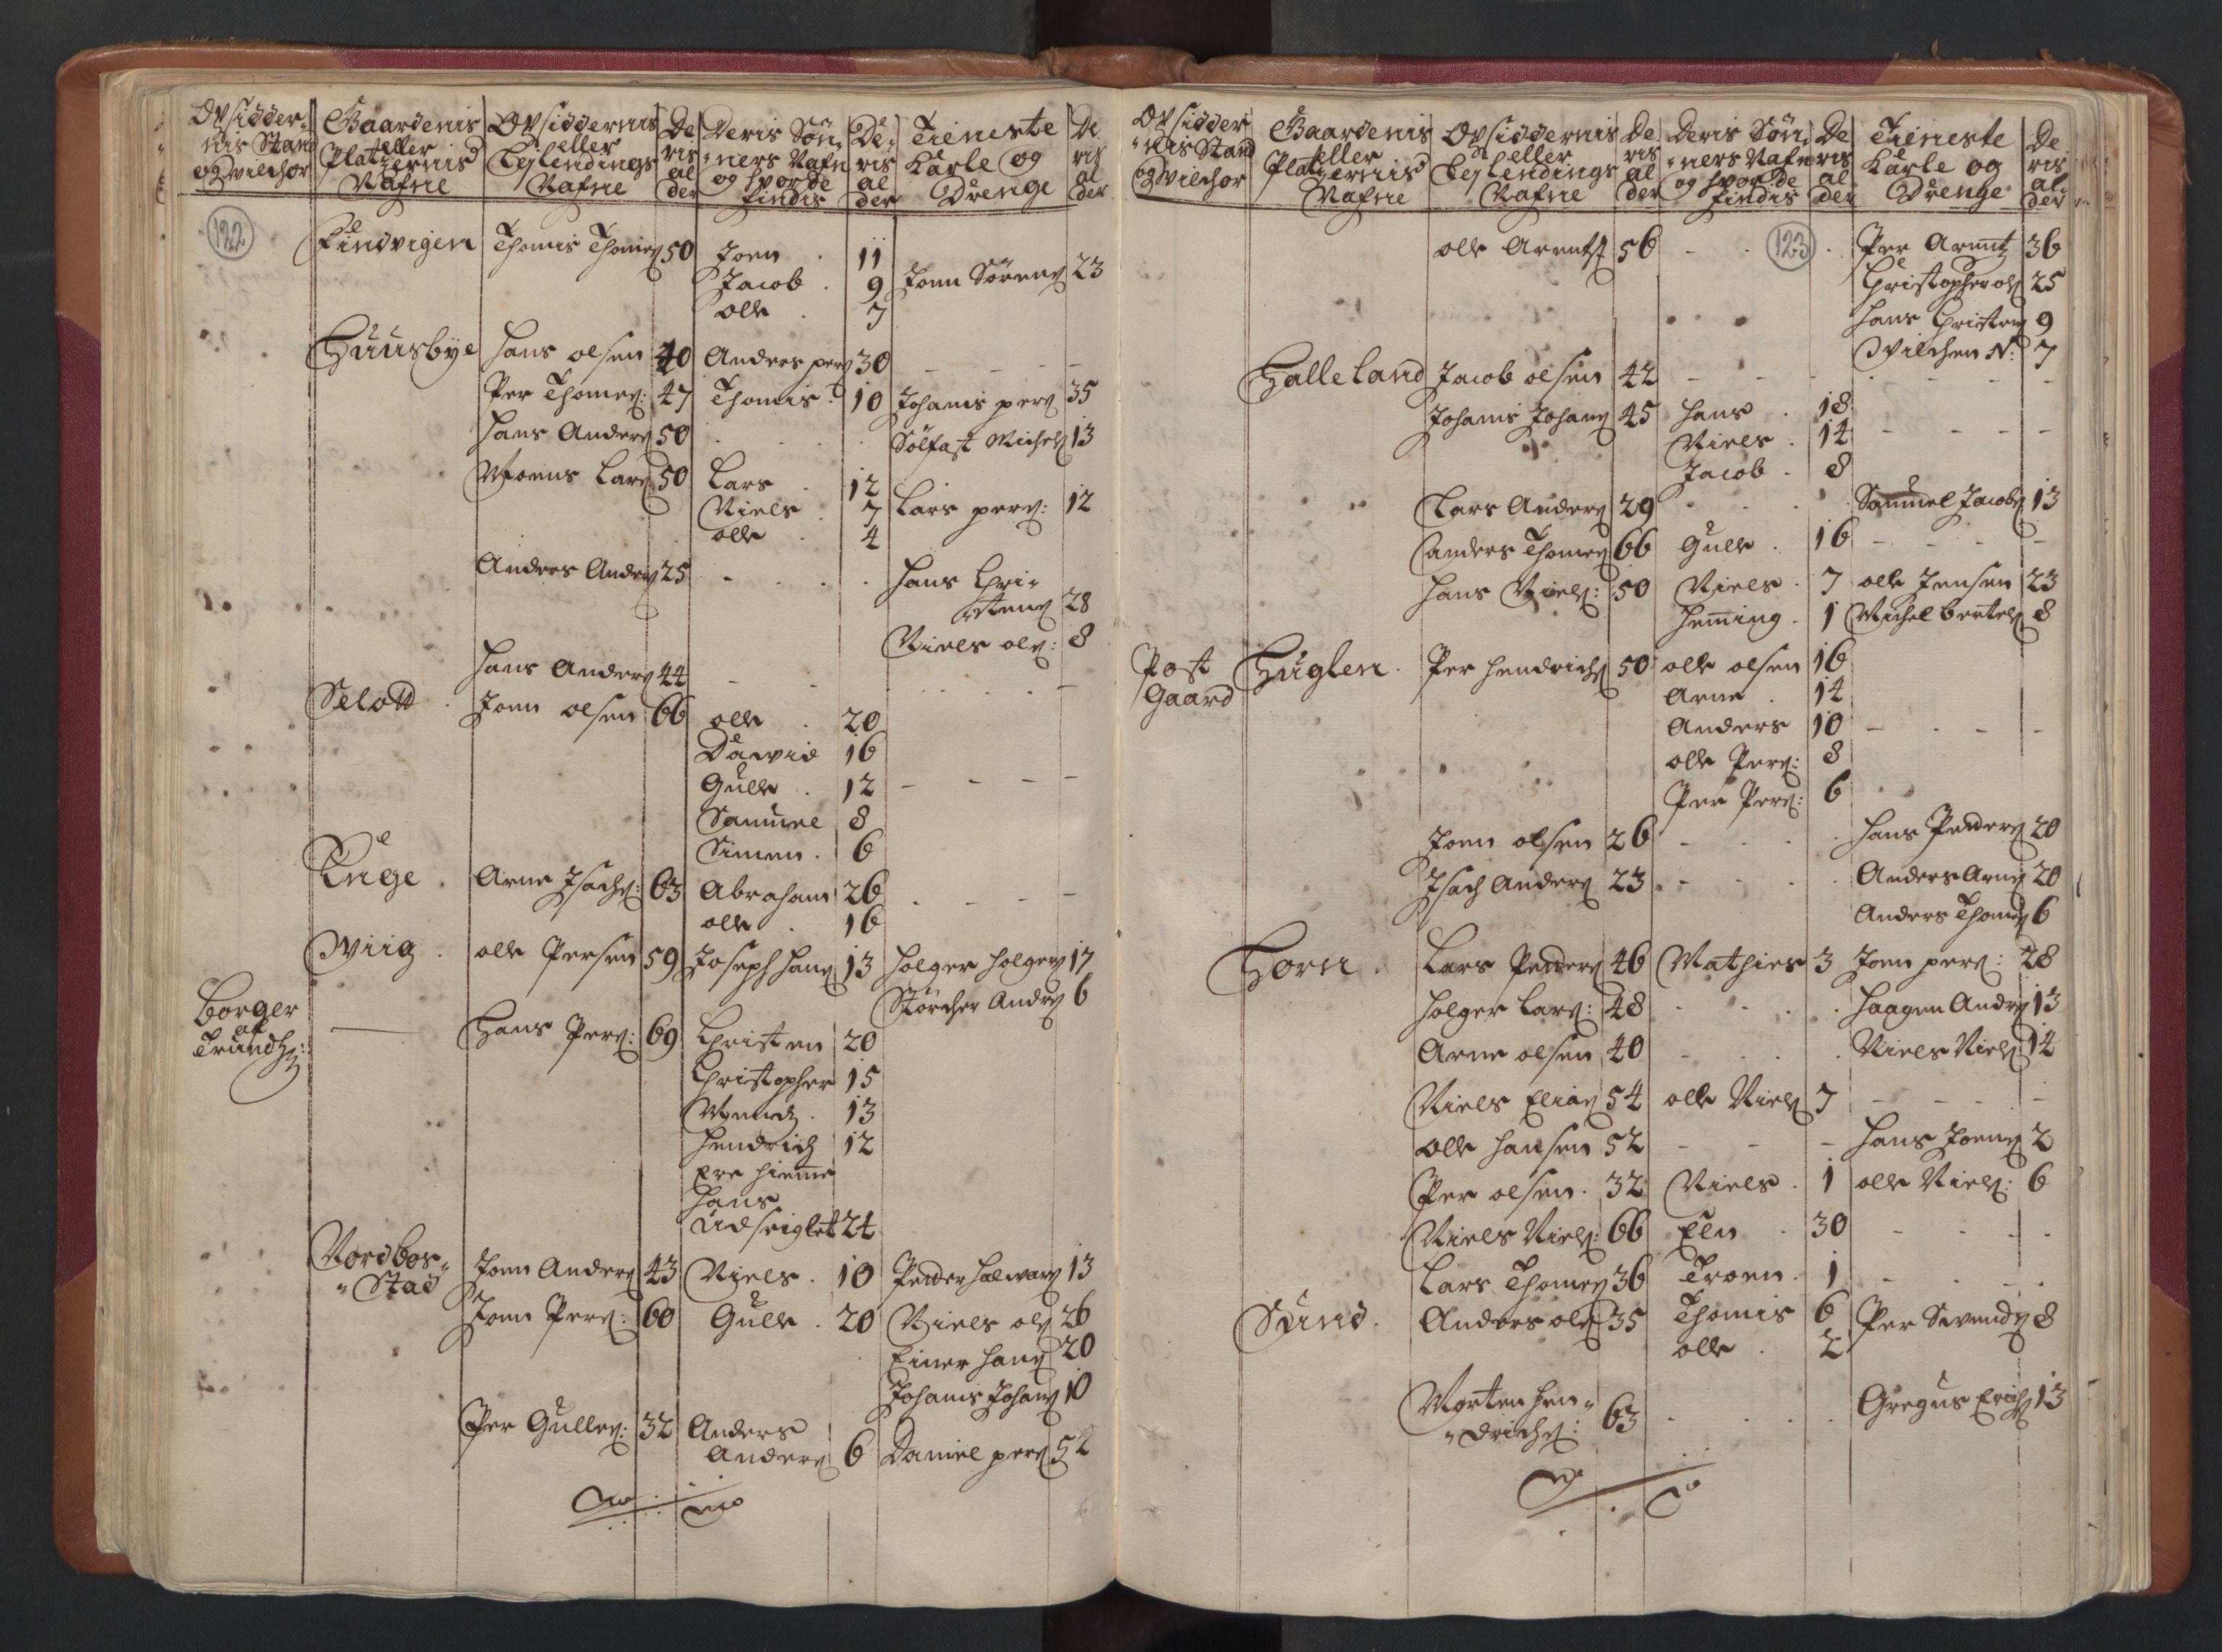 Opsidder-
nis Stand
og Vilchor
Gaardenis
eller
Platzernis
Nafne
Opsiddernis
eller
Leylendings
Nafne
De
ris
al
der
Deris Søn-
ners Nafn
og hvor de
findis
De-
ris
al
der
Tieneste
Karle og
Drenge
De
ris
al
der
122
Findvigen Thomis Thomes 50 Joen 11
Jacob 9 Joen Sørens 23
olle 7
Huusbye Hans olsen 40 Anders pers 30
Per Thomes: 47 Thomis 10 Johanis pers 35
Hans Anders 50 Sølfast Michels 13
Moens Lars 50 Lars 12
Niels 7 Lars pers: 12
olle 4
Anders Anders 25 Hans Chri-
stens 28
Niels ols: 8
Hans Anders 44
Selott Joen olsen 66 olle 20
David 16
Gulle 12
Samuel 8
Simen 6
Arne Isachs: 63 Abraham 26
olle 16
Wiig olle Persen 59 Joseph Hans 13 Holger Holgers 17
Størcher Anders 6
Borger
af
Trundh:
Hans Pers: 69 Christen 20
Christopher 15
13
Hendrich 12
Ere hieme
Hans
Udseiglet 24
Nordbos-
Stad Joen Anders 43 Niels 10 Peder Halvars 13
Joen Pers: 60 Gulle 20 Niels ols 26
Einer Hans 20
Johanis Johans 10
Per Gulles: 32 Anders
Anders 6 Daniel pers 52
Opsidder
nis Stand
og Vilchor
Gaardenis
eller
Platzernis
Nafne
Opsiddernis
eller
Leylendings
Nafne
De
ris
al
der
Deris Søn
ners Nafn
og hvor de
findis
De
ris
al
der
Tieneste
Karle og
Drenge
De
ris
al-
der
olle Arents 56 123 Per Arents 36
Christopher ols 25
Hans Christens 9
Wilchen N: 7
Halleland Jacob olsen 42
Johanis Johans 45 Hans 18
Niels 14
Jacob 8
Lars Anders 29 Samuel Jacobs 13
Anders Thomes 66 Gulle 16
Hans Niels: 50 Niels 7 olle Jensen 23
Heming 1 Michel Bertels 8
Post
Gaard
Huglen Per Hendrichs 50 olle olsen 16
Arne 14
Anders 10
olle Pers: 8
Per Pers: 6
Joen olsen 26 Hans Peders 20
Isach Anders 23 Anders Arns 20
Anders Thomes 6
Horn Lars Peders 46 Mathies 3 Joen pers: 28
Holger Lars: 48 Haagen Anders 13
Arne olsen 40 Niels Niels 14
Niels Elias 54 olle Niels 7
olle Hansen 52 Hans Joens 2
Per olsen 32 Niels 1 olle Niels: 6
Niels Niels: 66 Elen 30
Lars Thomes 36 Troen 1
Sund Anders ols 35 Thomis 6 Per Svends 8
olle 2
Morten Hen-
drichs: 63 Gregus Erichs 13